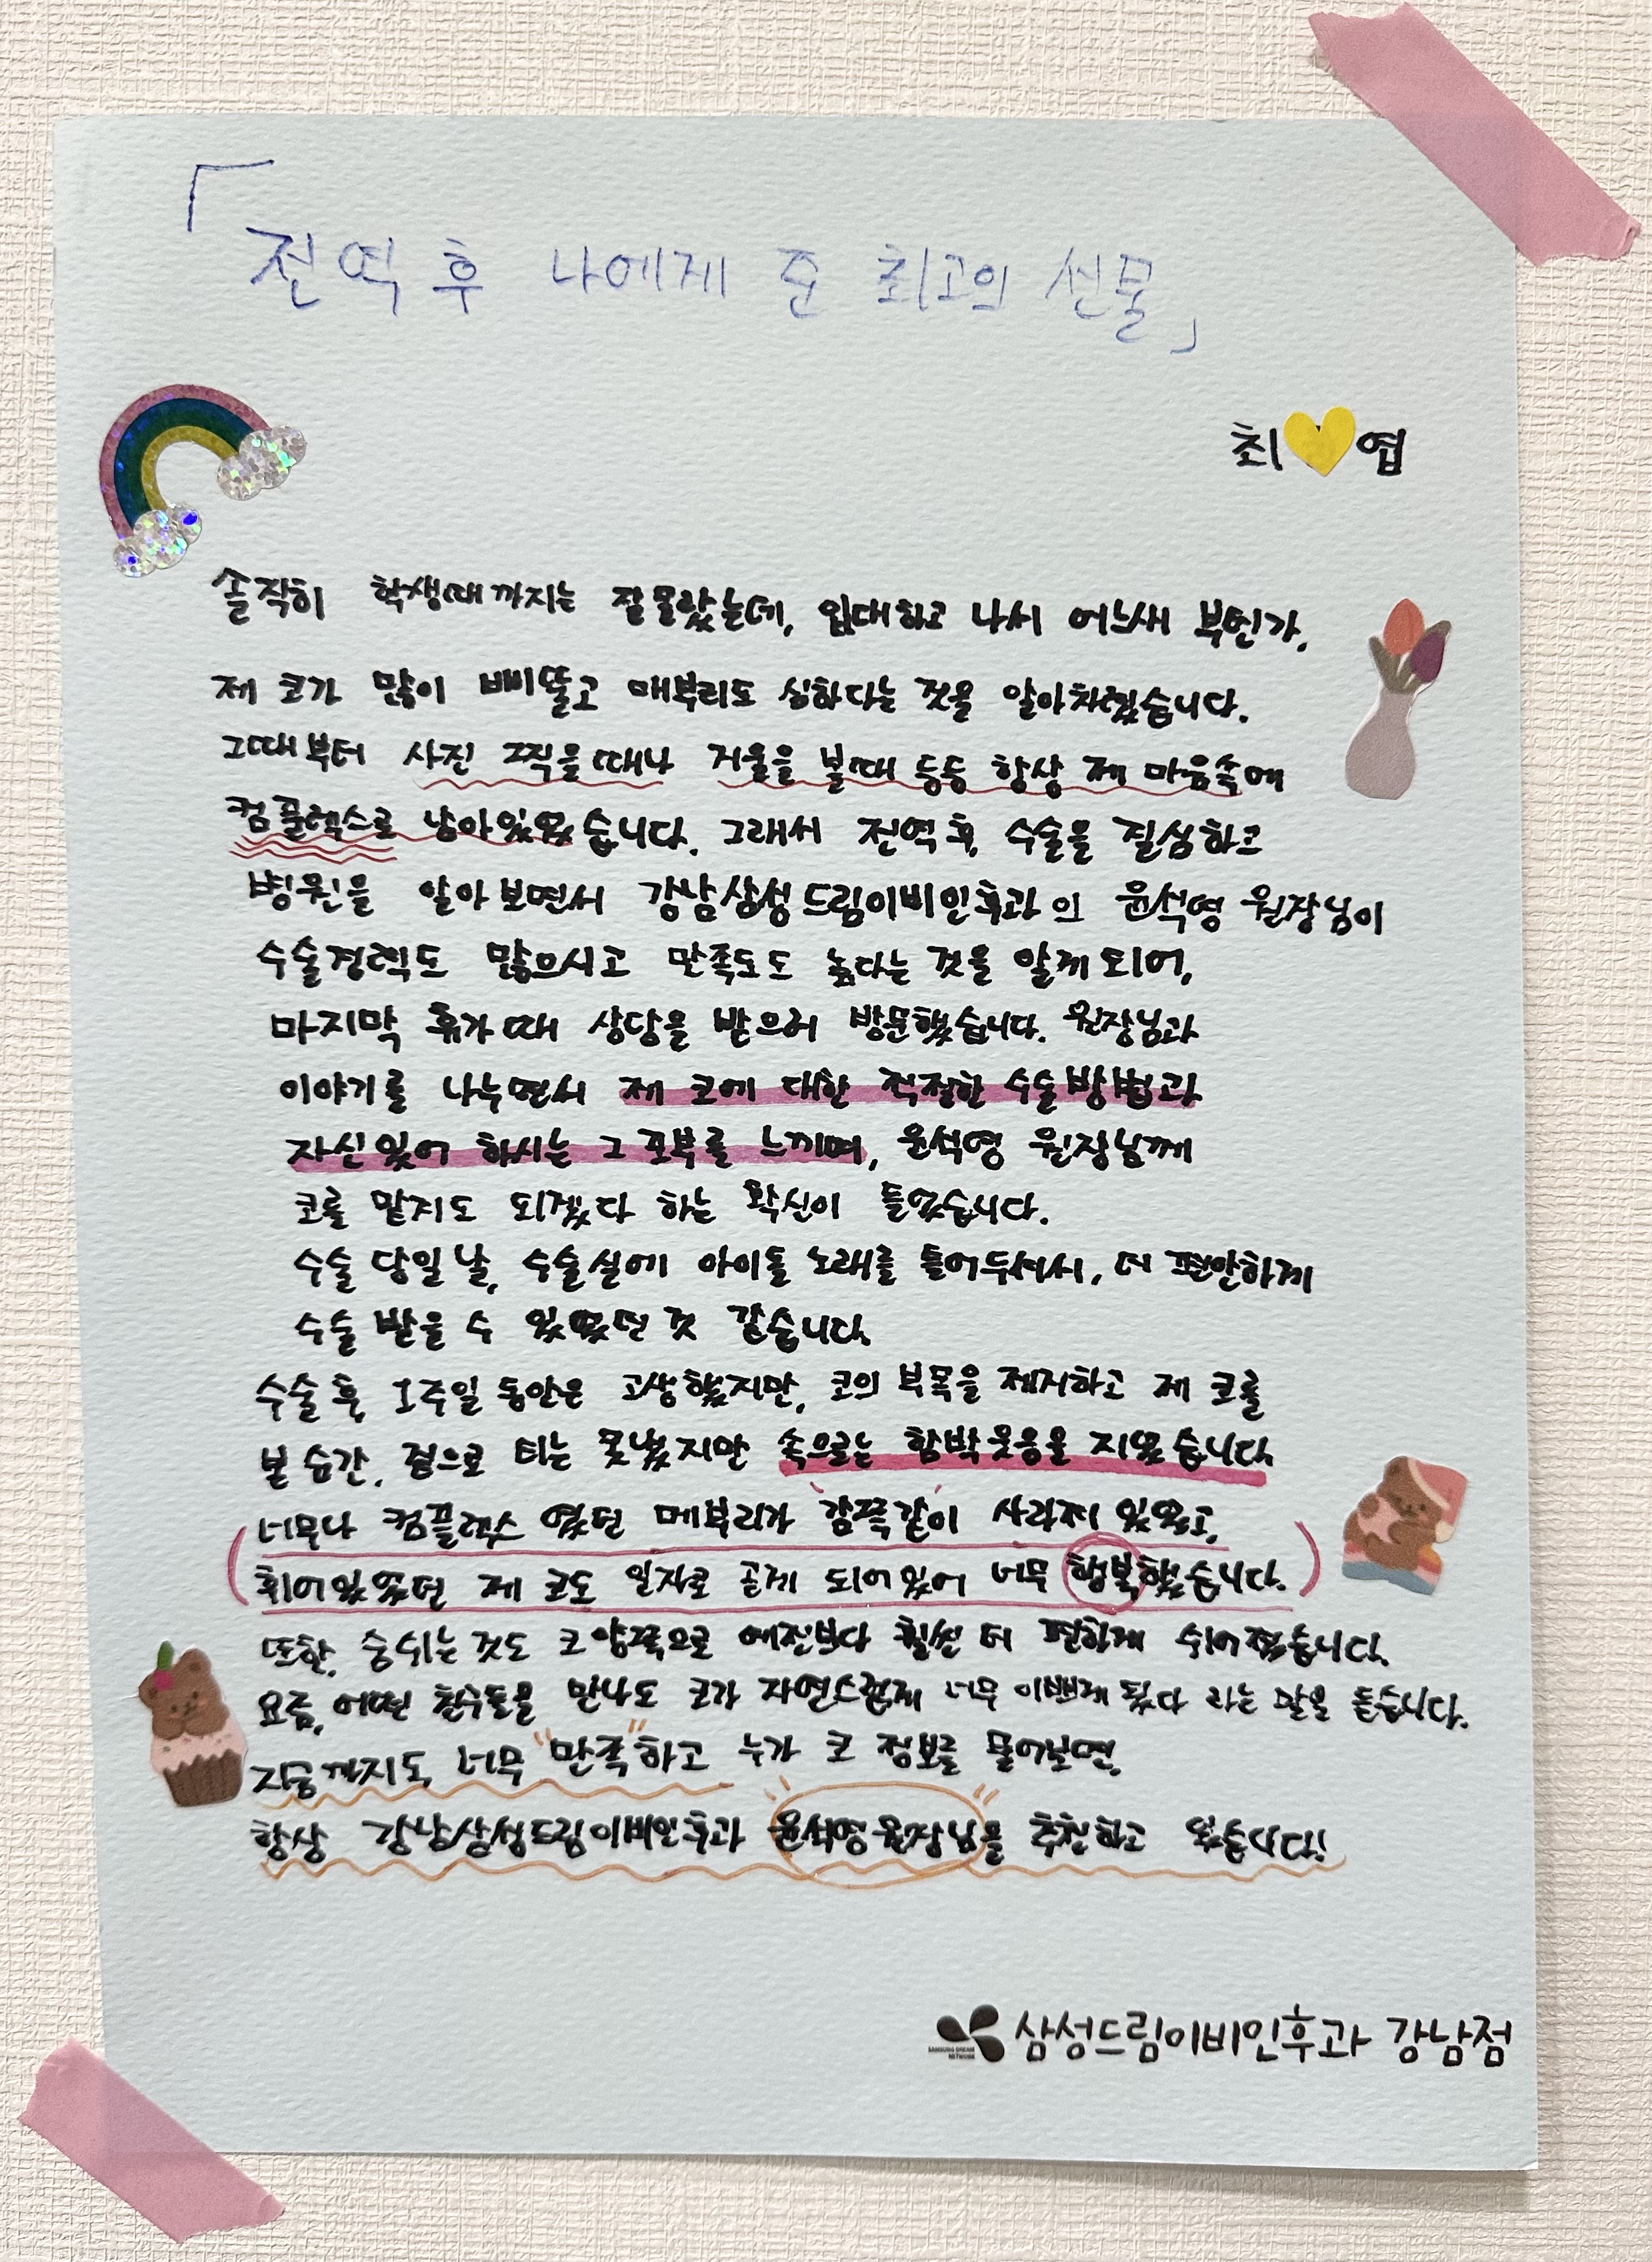 「전역 후 나에게 준 최고의 선물」
최💛엽
솔직히 학생때까지는 잘몰랐는데, 입대하고 나서 어느새 부턴가,
제 코가 많이 삐뚤고 매부리도 심하다는 것을 알아차렸습니다.
그때부터 사진 찍을때나 거울을 볼때 등등 항상 제 마음속에
컴플렉스로 남아있었습니다. 그래서 전역 후, 수술을 결심하고
병원을 알아보면서 강남삼성드림이비인후과의 윤석영 원장님이
수술경력도 많으시고 만족도도 높다는 것을 알게 되어,
마지막 휴가때 상담을 받으러 방문했습니다. 원장님과
이야기를 나누면서 제 코에 대한 적절한 수술방법과
자신있어 하시는 그 포부를 느끼며, 윤석영 원장님께
코를 맡겨도 되겠다 하는 확신이 들었습니다.
수술 당일날, 수술실에 아이돌 노래를 틀어두셔서, 더 편안하게
수술 받을 수 있었던 것 같습니다.
수술 후, 1주일 동안은 고생했지만, 코의 부목을 제거하고 제 코를
본 순간, 겉으로 티는 못냈지만 속으로는 함박웃음을 지었습니다.
너무나 컴플렉스였던 메부리가 '감쪽같이' 사라져 있었고,
(휘어있었던 제 코도 일자로 곧게 되어있어 너무 행복했습니다.)
또한, 숨쉬는 것도 코 양쪽으로 예전보다 훨씬 더 편하게 쉬어졌습니다.
요즘, 어떤 친구들을 만나도 코가 자연스럽게 너무 이쁘게 됬다 라는 말을 듣습니다.
지금까지도 너무 "만족"하고 누가 코 정보를 물어보면,
항상 강남삼성드림이비인후과 윤석영원장님을 추천하고 있습니다!
SAMSUNG DREAM NETWORK 삼성드림이비인후과 강남점